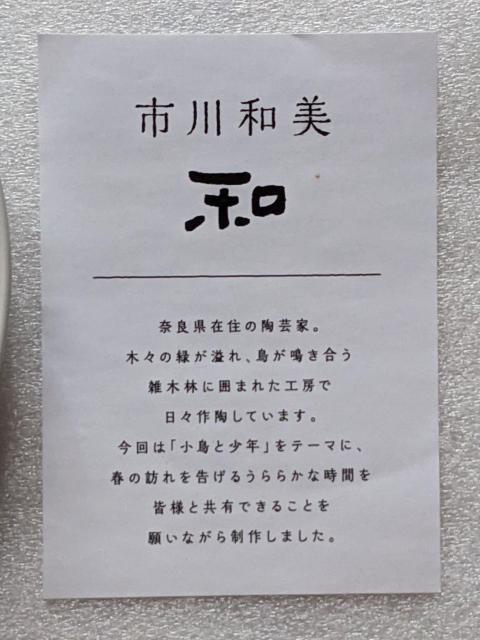 市川和美
和
奈良県在住の陶芸家。
木々の緑が溢れ、鳥が鳴き合う
雑木林に囲まれた工房で
日々作陶しています。
今回は「小鳥と少年」をテーマに、
春の訪れを告げるうららかな時間を
皆様と共有できることを
願いながら制作しました。